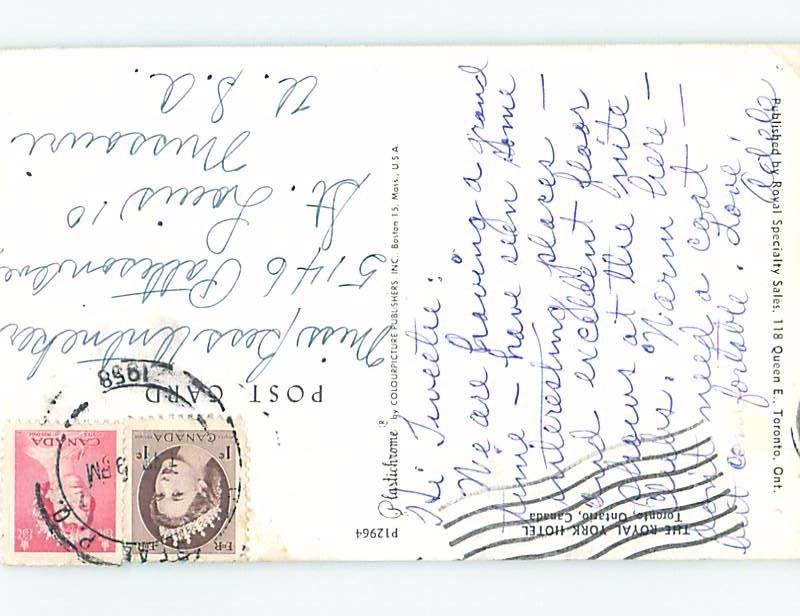 Hi Sweetie:
We are having a grand
time - have seen some
interesting places -
and excellent floor
shows at the nite
clubs. Warm here -
don't need a coat -
but comfortable. Love
Adele.
POST CARD
Miss Bess
5146 Pattison Ave
St. Louis 10
Missouri
U. S. A.
THE ROYAL YORK HOTEL
Toronto, Ontario, Canada
Published by Royal Specialty Sales, 118 Queen E., Toronto, Ont.
P12964
Plastichrome ® by COLOURPICTURE PUBLISHERS, INC. Boston 15, Mass., U.S.A.
CANADA
1¢ 1¢
E II R
CANADA
PM
1958
P.Q.